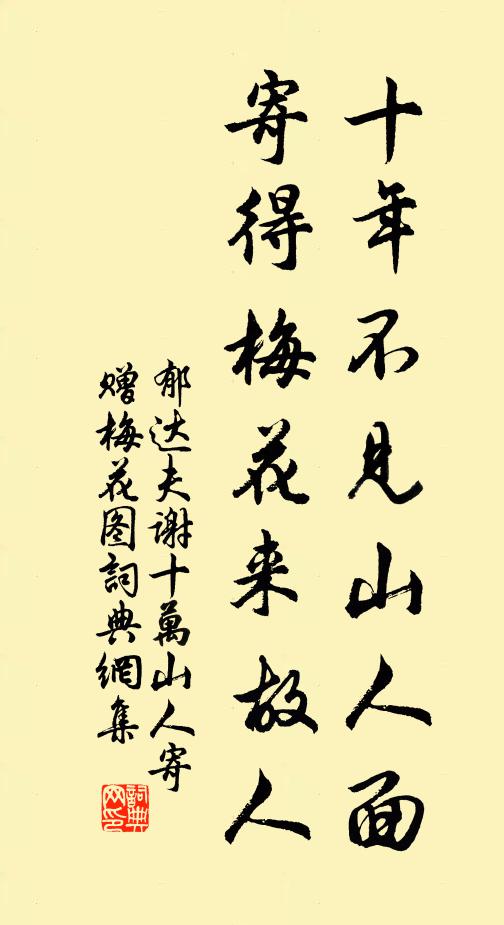 十年不见山人面
寄得梅花来故人
郁达夫谢十萬山人寄
赠梅花图詞典網集
詞典网印